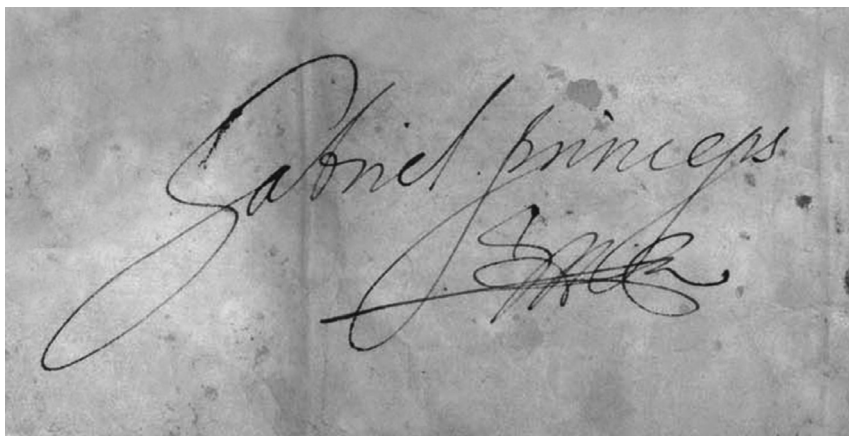 Gabriel princeps